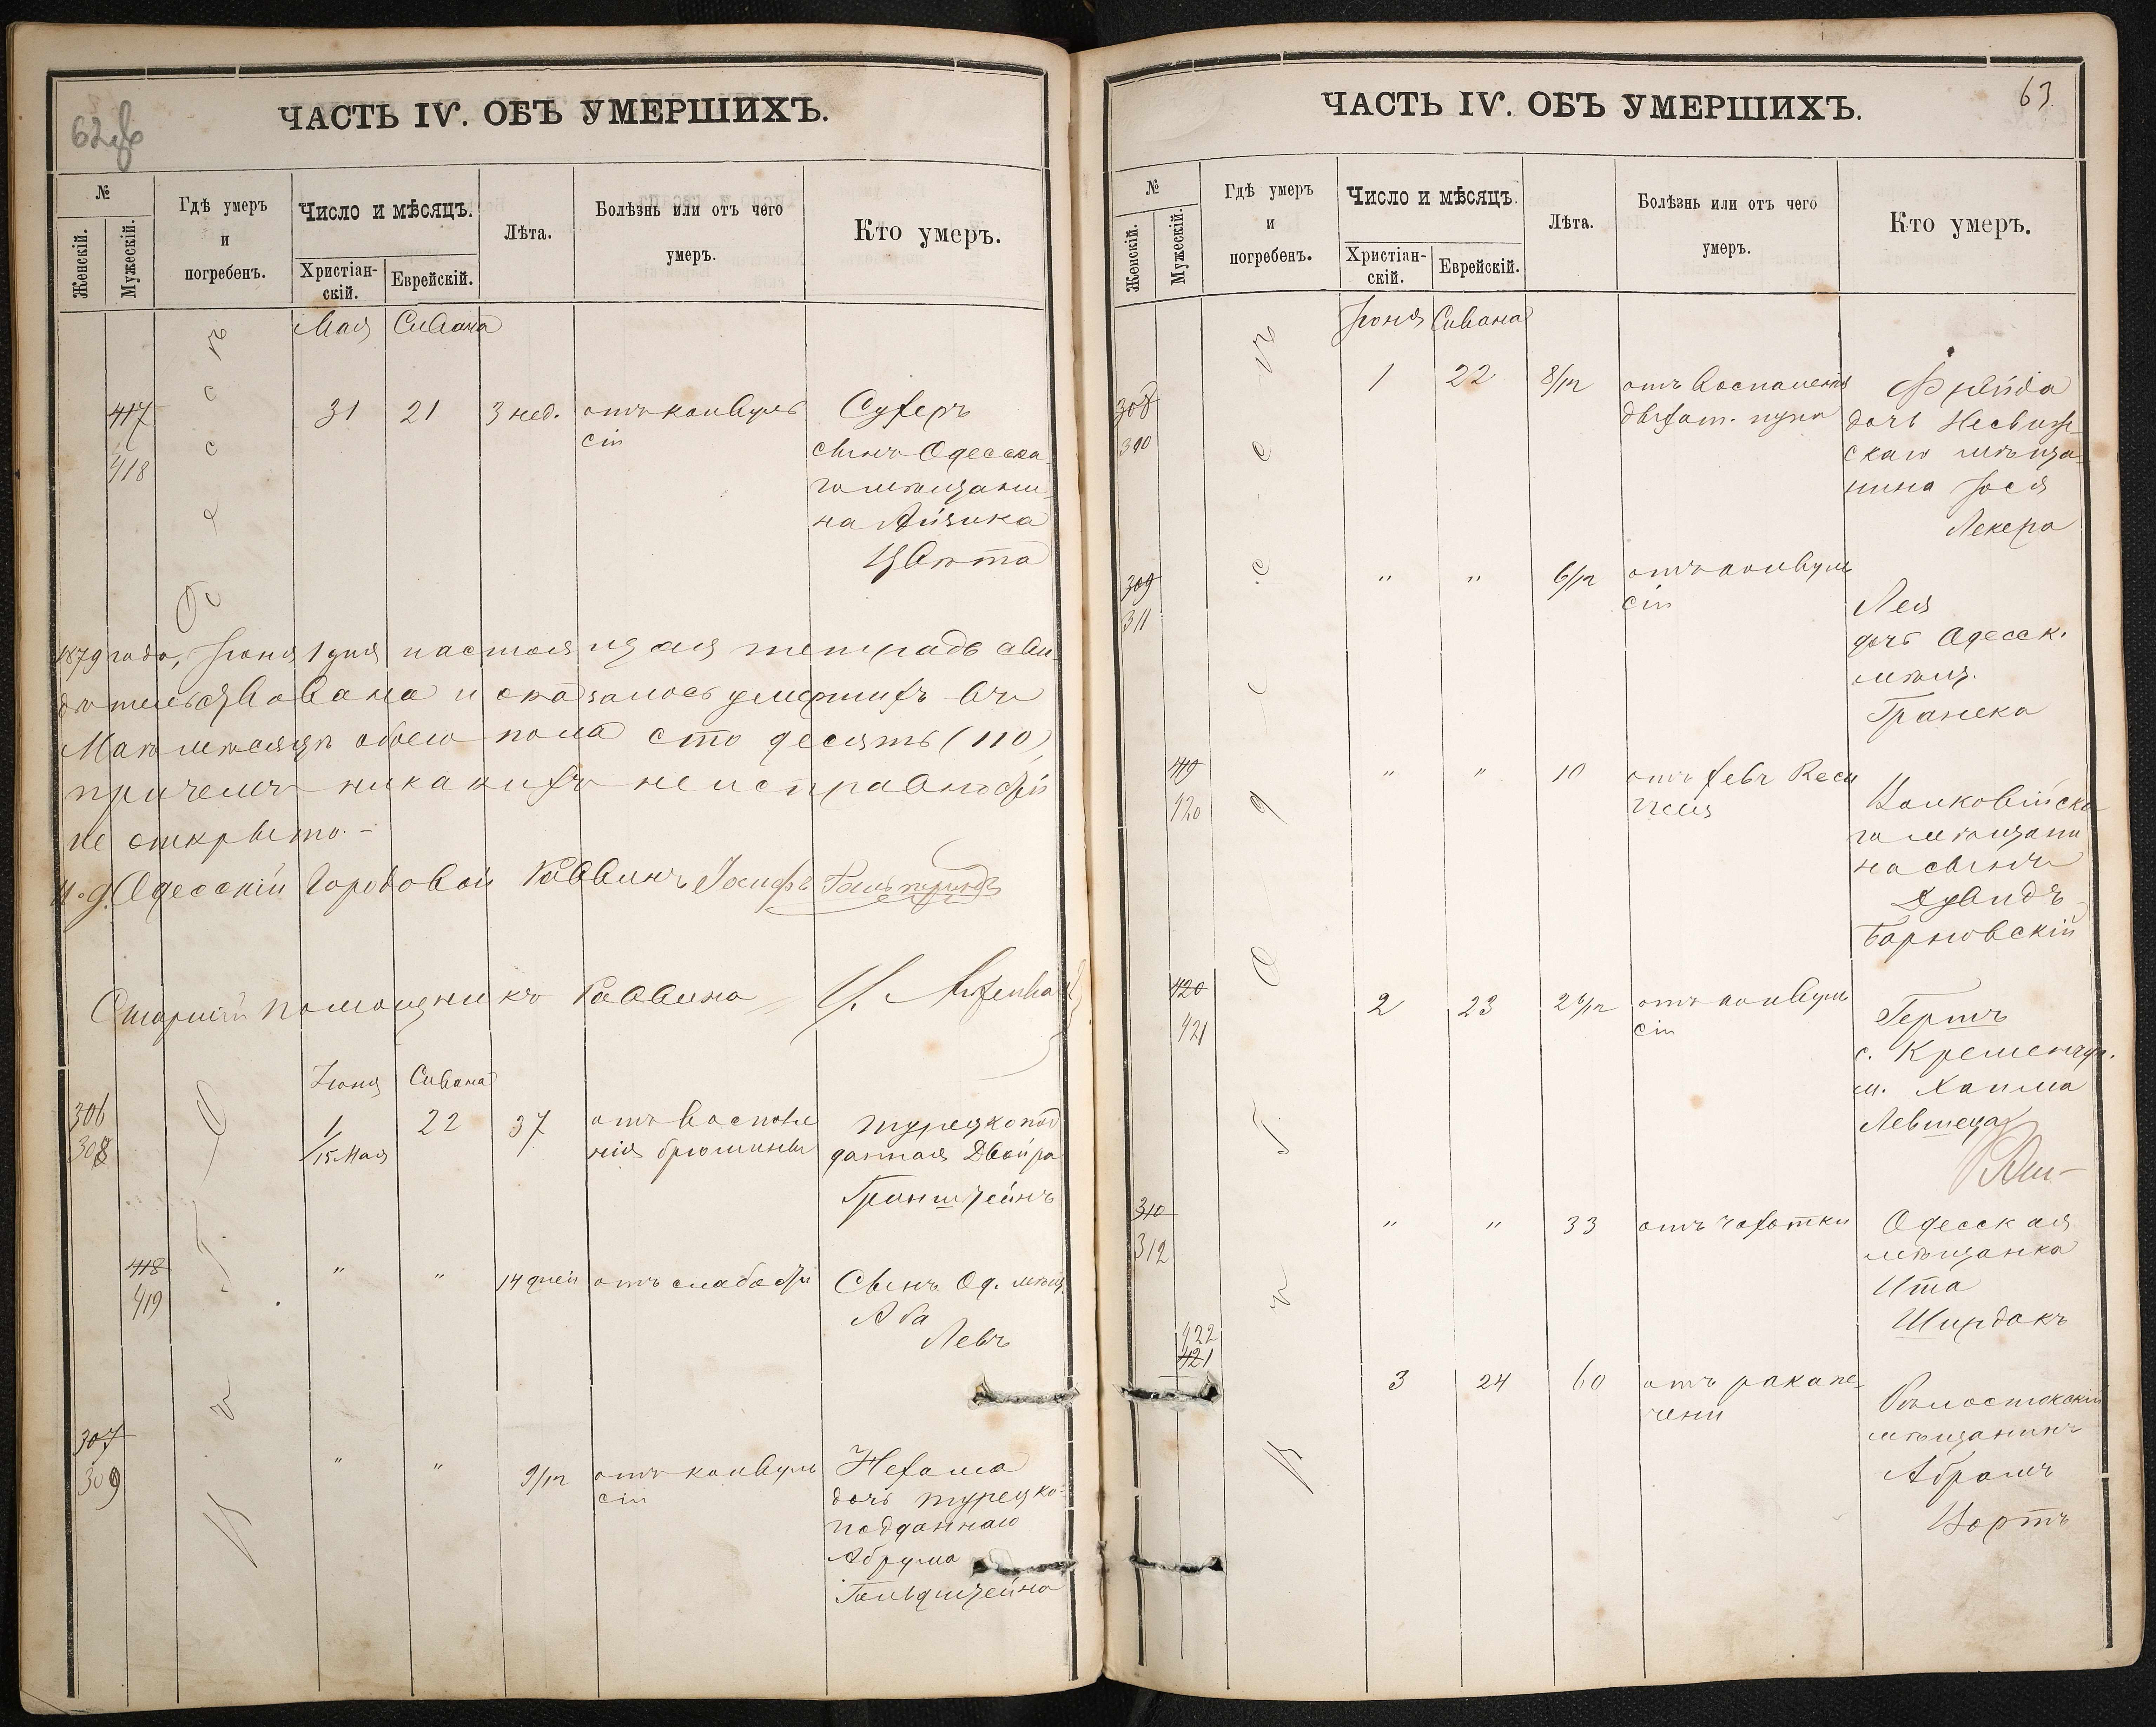 62 об
ЧАСТЬ IѴ. ОБЪ УМЕРШИХЪ.
№
Женскій.
Мужескій.
Гдѣ умеръ
и
погребенъ.
Число и мѣсяцъ.
Христіан-
скій.
Еврейскій.
Лѣта.
Болѣзнь или отъ чего
умеръ.
Кто умеръ.
Мая Сивана
417
418
31 21 3 нед. отъ конвуль
сіи
Сухеръ
сынъ Одесска
го мѣщани
на Айзика
Цвѣта
1879 года, Іюня 1 дня настоящая тетрадь сви
дѣтельствована и оказалось умершихъ въ
Маѣ мѣсяцѣ обоего пола сто десять (110),
причемъ никакихъ неисправностей
не открыто. –
И. д. Одесскій Городовой Раввинъ Іосифъ
Старшій помощникъ Раввина
Іюня Сивана
306
308
1
/15 Мая
22 37 отъ воспале
нія брюшины
турецкопод
данная Двойра
Гринштейнъ
418
419
" " 14 дней отъ слабости
Сынъ Од. мѣщ.
Аба
Левъ
307
309
" " 9/м отъ конвуль
сіи
Нехама
дочь турецко-
подданнаго
Абрума
Гольдштейна
63
ЧАСТЬ IѴ. ОБЪ УМЕРШИХЪ.
№
Женскій.
Мужескій.
Гдѣ умеръ
и
погребенъ.
Число и мѣсяцъ.
Христіан-
скій.
Еврейскій.
Лѣта.
Болѣзнь или отъ чего
умеръ.
Кто умеръ.
Іюня Сивана
308
310
1 22 8/м отъ воспаленія
дыхат. пути
Фрейда
дочь Несвиж
скаго мѣща
нина Іося
Лекера
309
311
" " 6/м отъ конвуль
сіи
Лея
дочь Одесск.
мѣщ.
419
420
" " 10 отъ
Волковійска
го мѣщани
на сынъ
Дувидъ
Барновскій
420
421
2 23 2 /м отъ конвуль
сіи
Гершъ
с. Кременчуг.
м. Хаима
310
312
" " 33 отъ чахотки
Одесская
мѣщанка
Ита
Ширдакъ
422
421
3 24 60 отъ рака пе-
чени
Бѣлостокскій
мѣщанинъ
Абрамъ
Вортъ